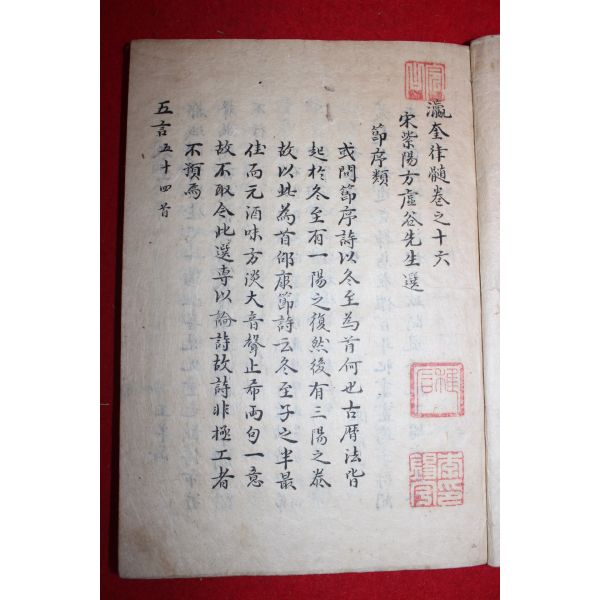 瀛奎律髓卷之十六
宋紫陽方虛谷先生選
節序類
或問節序詩以冬至為首何也古曆法皆
起於冬至有一陽之復然後有三陽之泰
故以此為首邵康節詩云冬至子之半最
佳而元酒味方淡大音聲止希兩句一意
故不取今此選專以論詩故詩非極工者
不預焉
五言五十四首